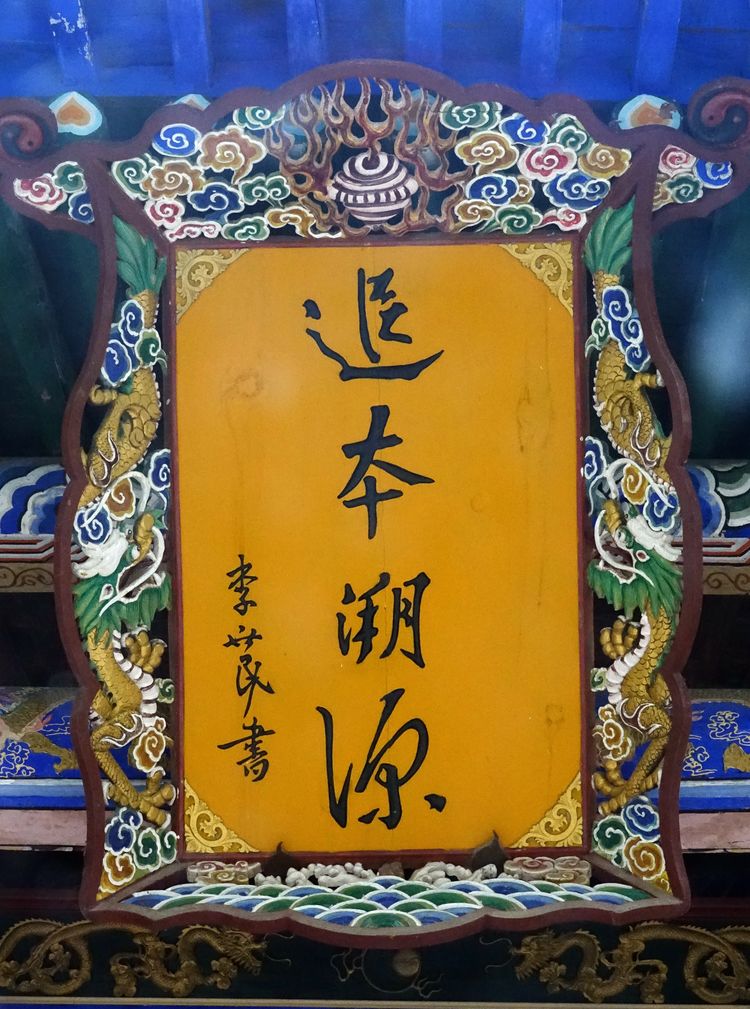 追本溯源
李世民書